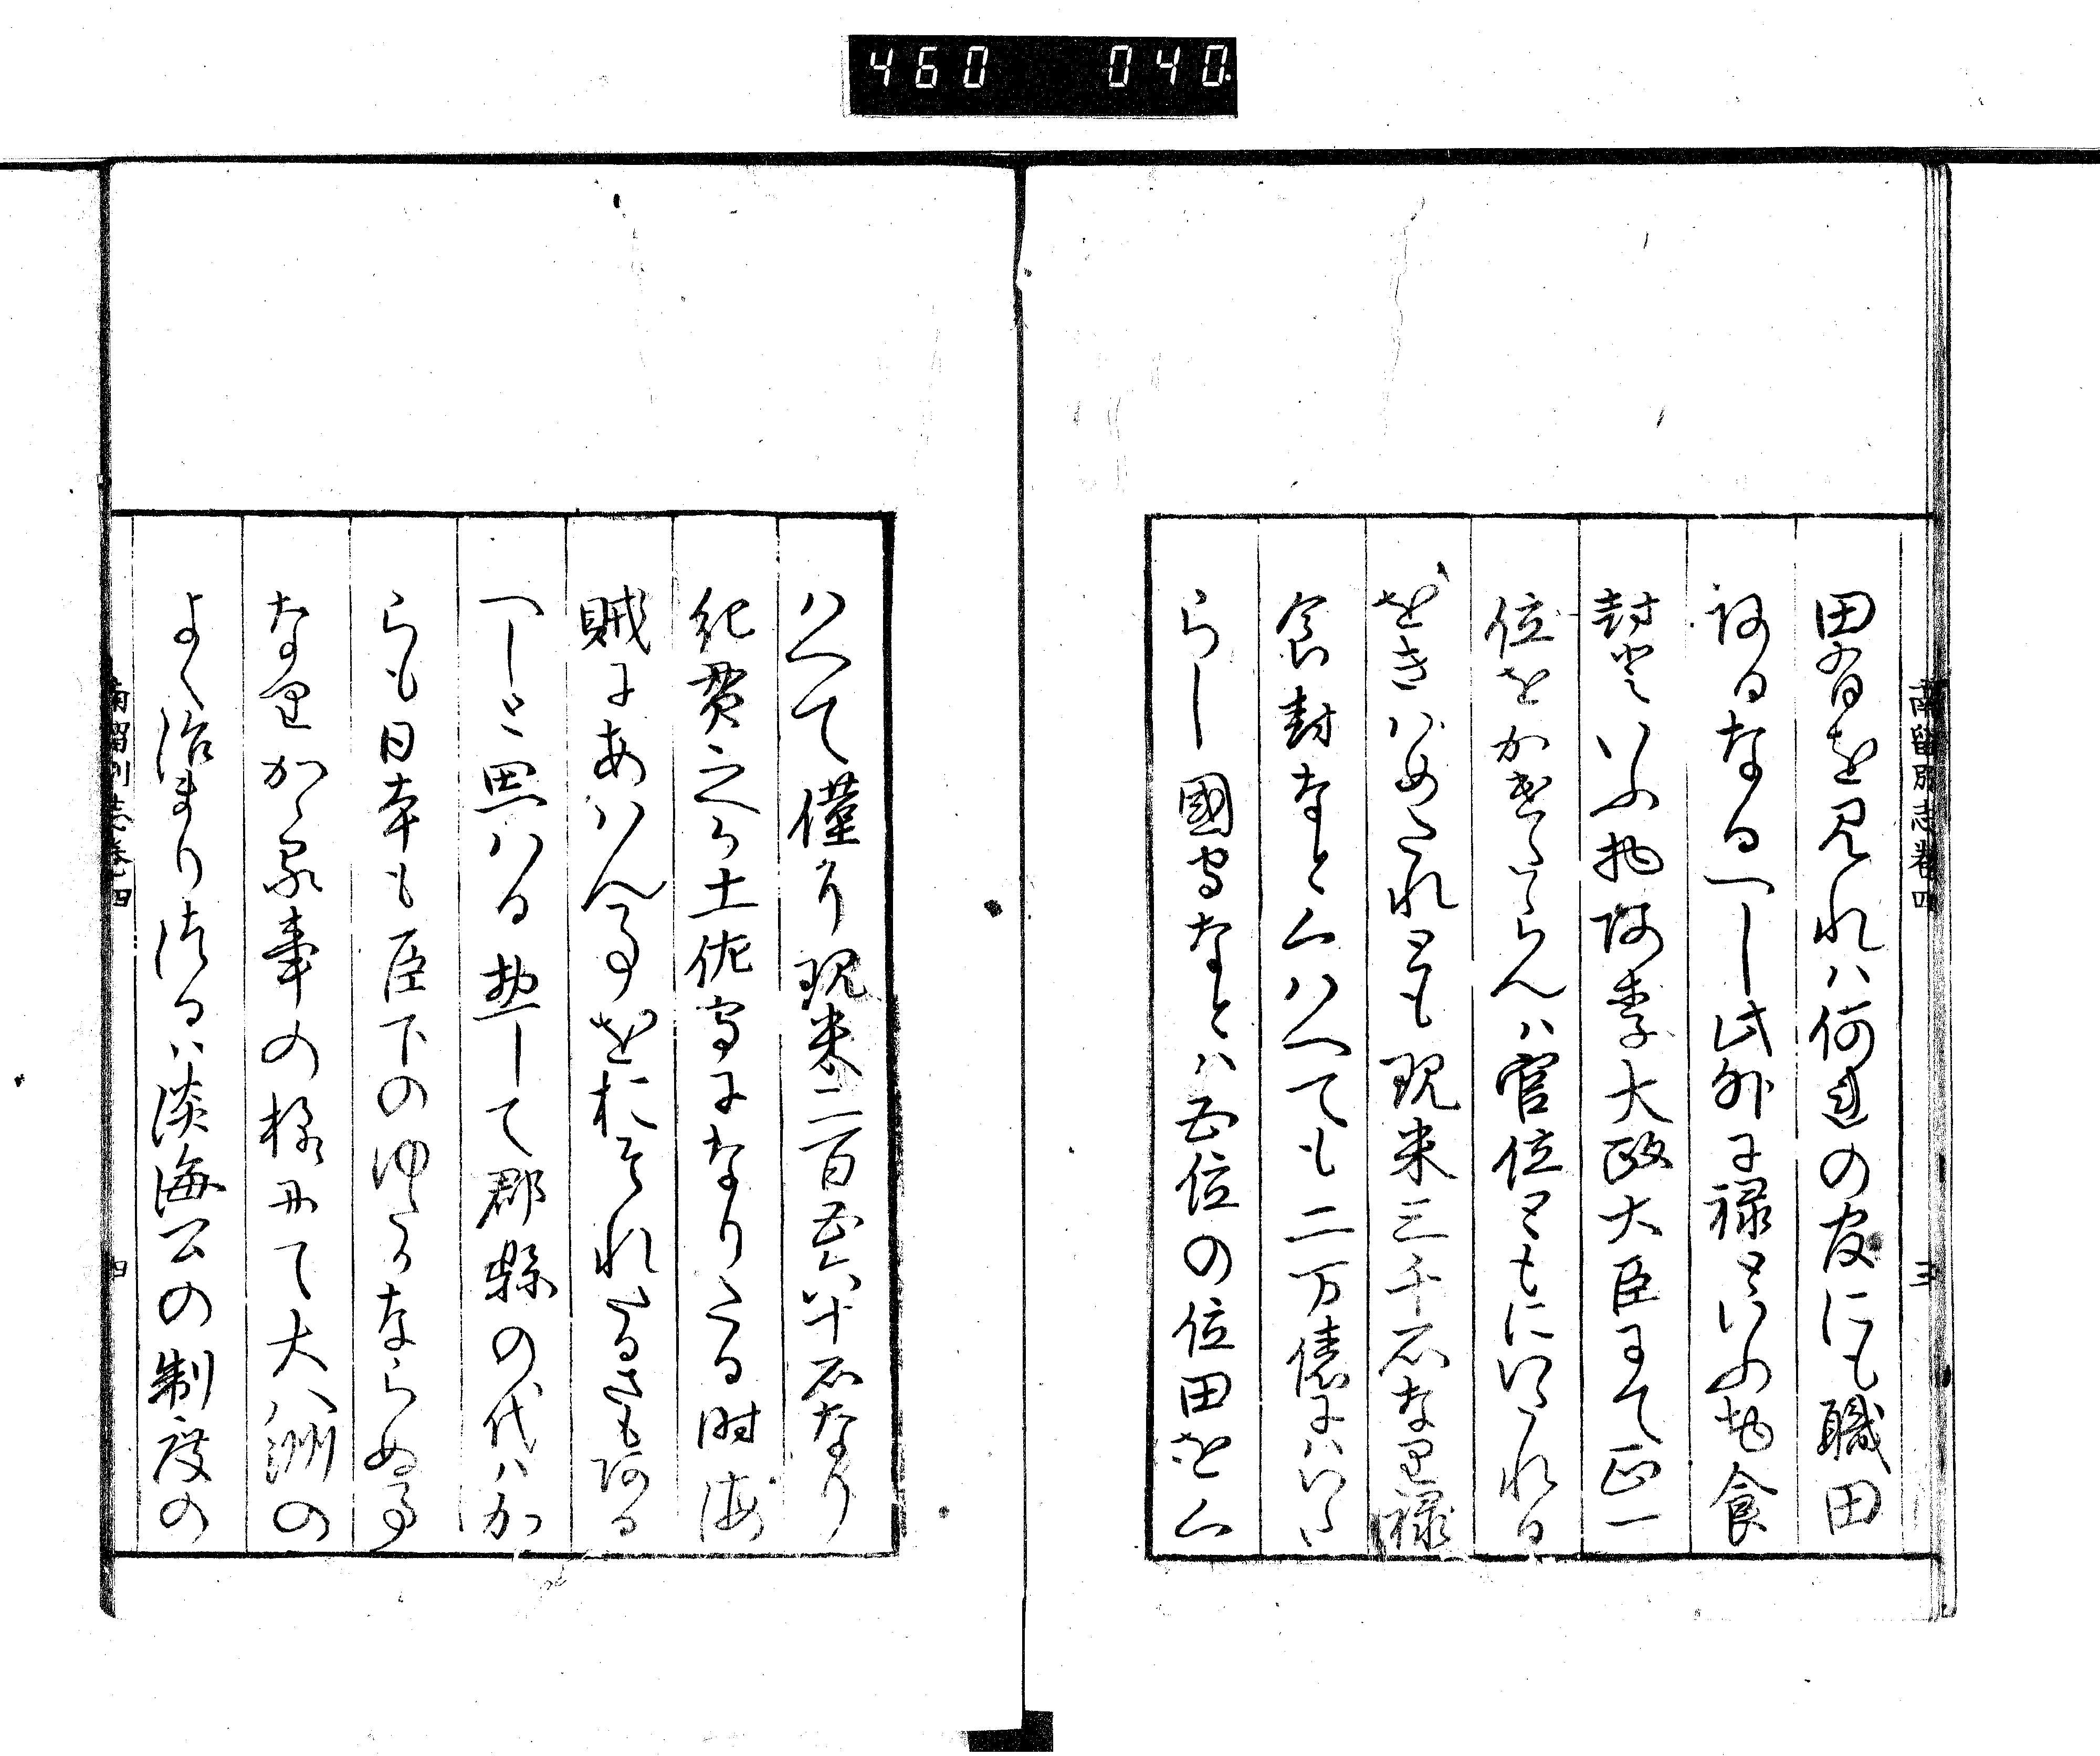 460 040
南留別志卷四 三
田有を見れハ何れの官にも職田
阿るなるへし此外に禄といふ物食
封といふ物阿季大政大臣にて正一
位をかさたらんハ官位ともにいたれる
をきハめたれとも現米三千石なり禄
食封なとくハへても二万俵にハいた
らし國守なとハ五位の位田をく
ハへて僅に現米二百五六十石なり
紀貫之ら土佐守になりたる時海
賊にあハん事をおそれたるさも阿る
へしと思ハる惣して郡縣の代ハか
らも日本も臣下のゆたかならぬ事
なりかゝる事の様にて大八洲の
よく治まりけるハ淡海公の制度の
南留別志卷四 四